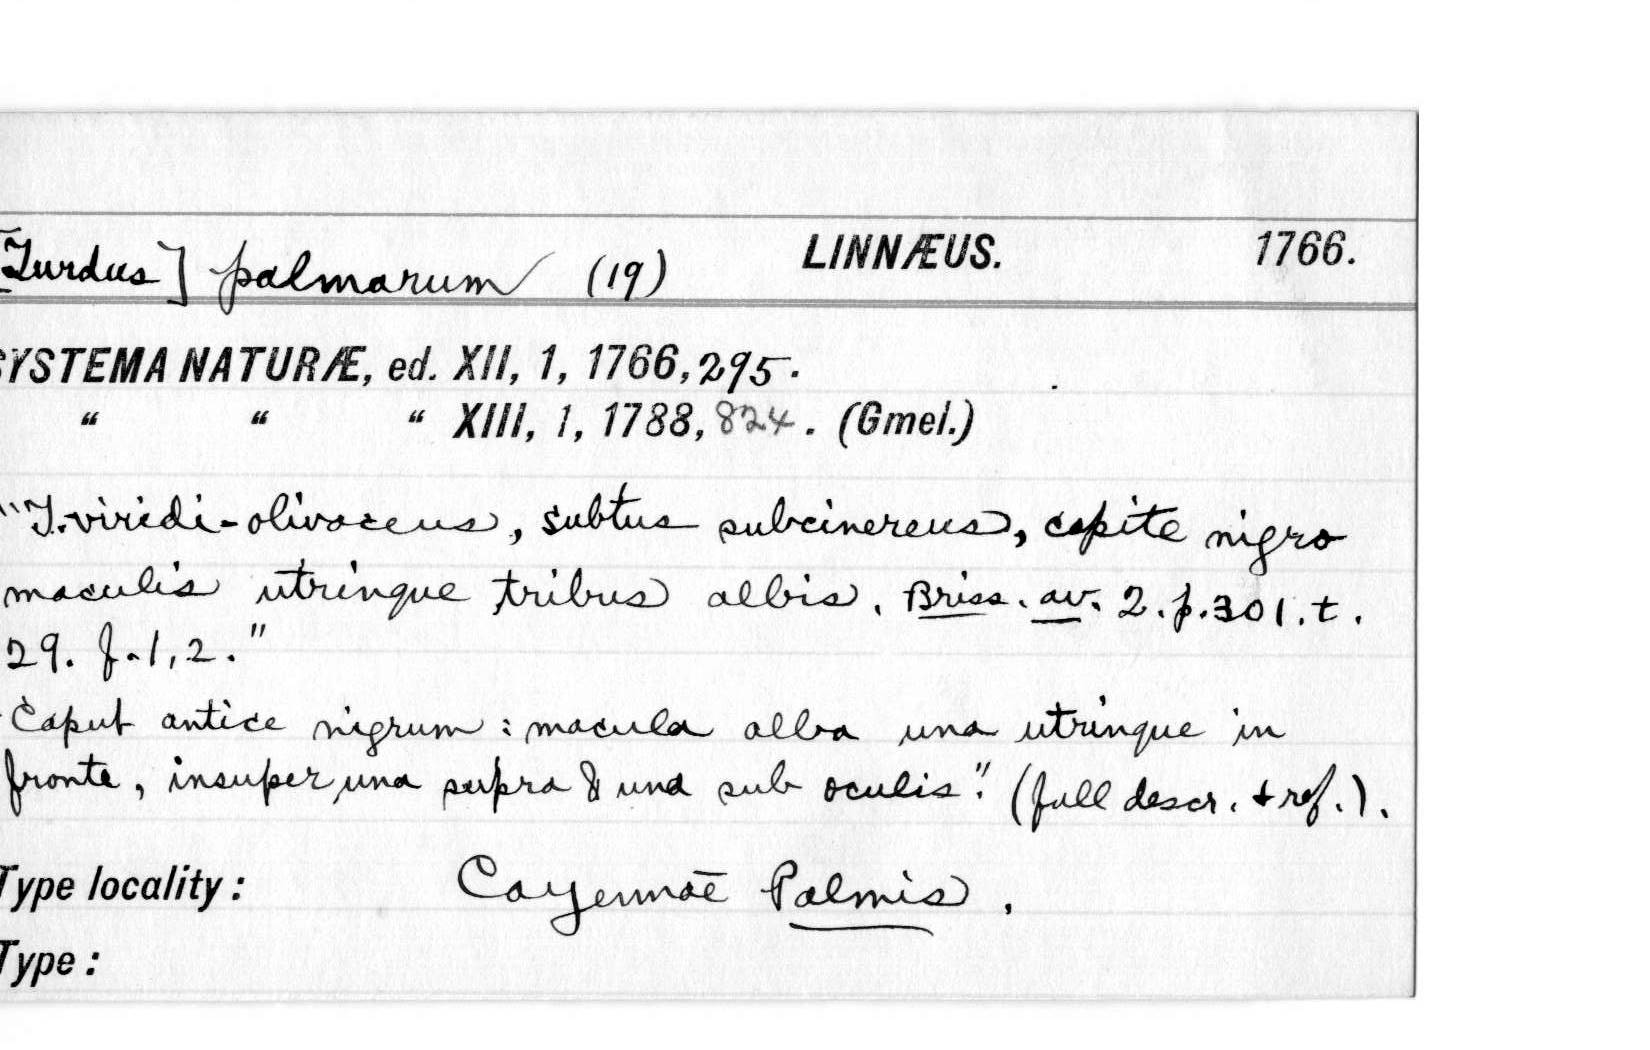 [Turdus] palmarum (19) LINNÆUS. 1766.
SYSTEMA NATURÆ, ed. XII, 1, 1766, 295.
“ “ “ XIII, 1, 1788, 824. (Gmel.)
"T. viridi-olivaceus, subtus subcinereus, capite nigro
maculis utrinque tribus albis. Briss. av. 2. p. 301. t.
29. f. 1, 2."
Caput antice nigrum: macula alba una utrinque in
fronte, insuper una supra & una sub oculis." (full descr. + ref.).
Type locality: Cayennae Palmis.
Type: